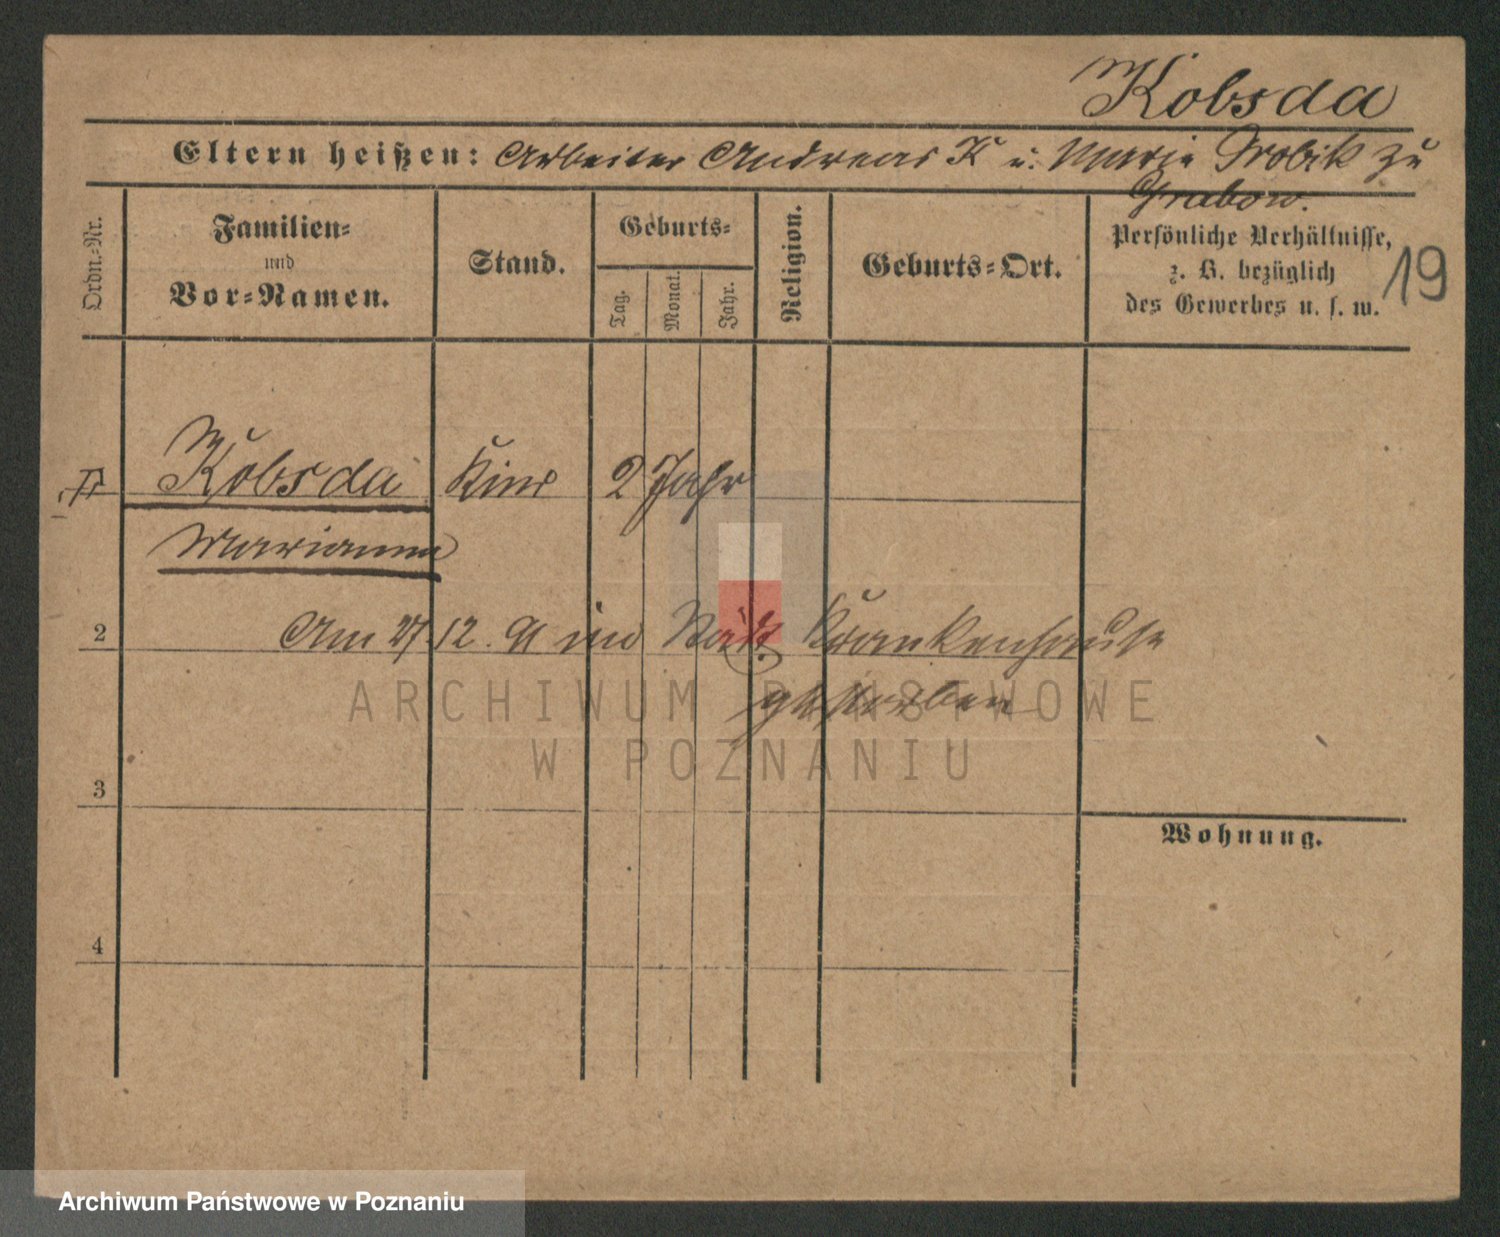 Kobsda
Eltern heißen: Arbeiter Andreas K u. Marie Probik zu
Grabow.
Ordn.=Nr.
Familien=
und
Vor=Namen.
Stand.
Geburts=
Tag.
Monat.
Jahr.
Religion.
Geburts=Ort.
Persönliche Verhältnisse,
z. B. bezüglich
des Gewerbes u. s. w.
19
Kobsda Kind 2 Jahr
Marianna
2 Am 27. 12. 91 im städt Krankenhause
gestorben
ARCHIWUM PAŃSTWOWE
W POZNANIU
3
Wohnung.
4
Archiwum Państwowe w Poznaniu